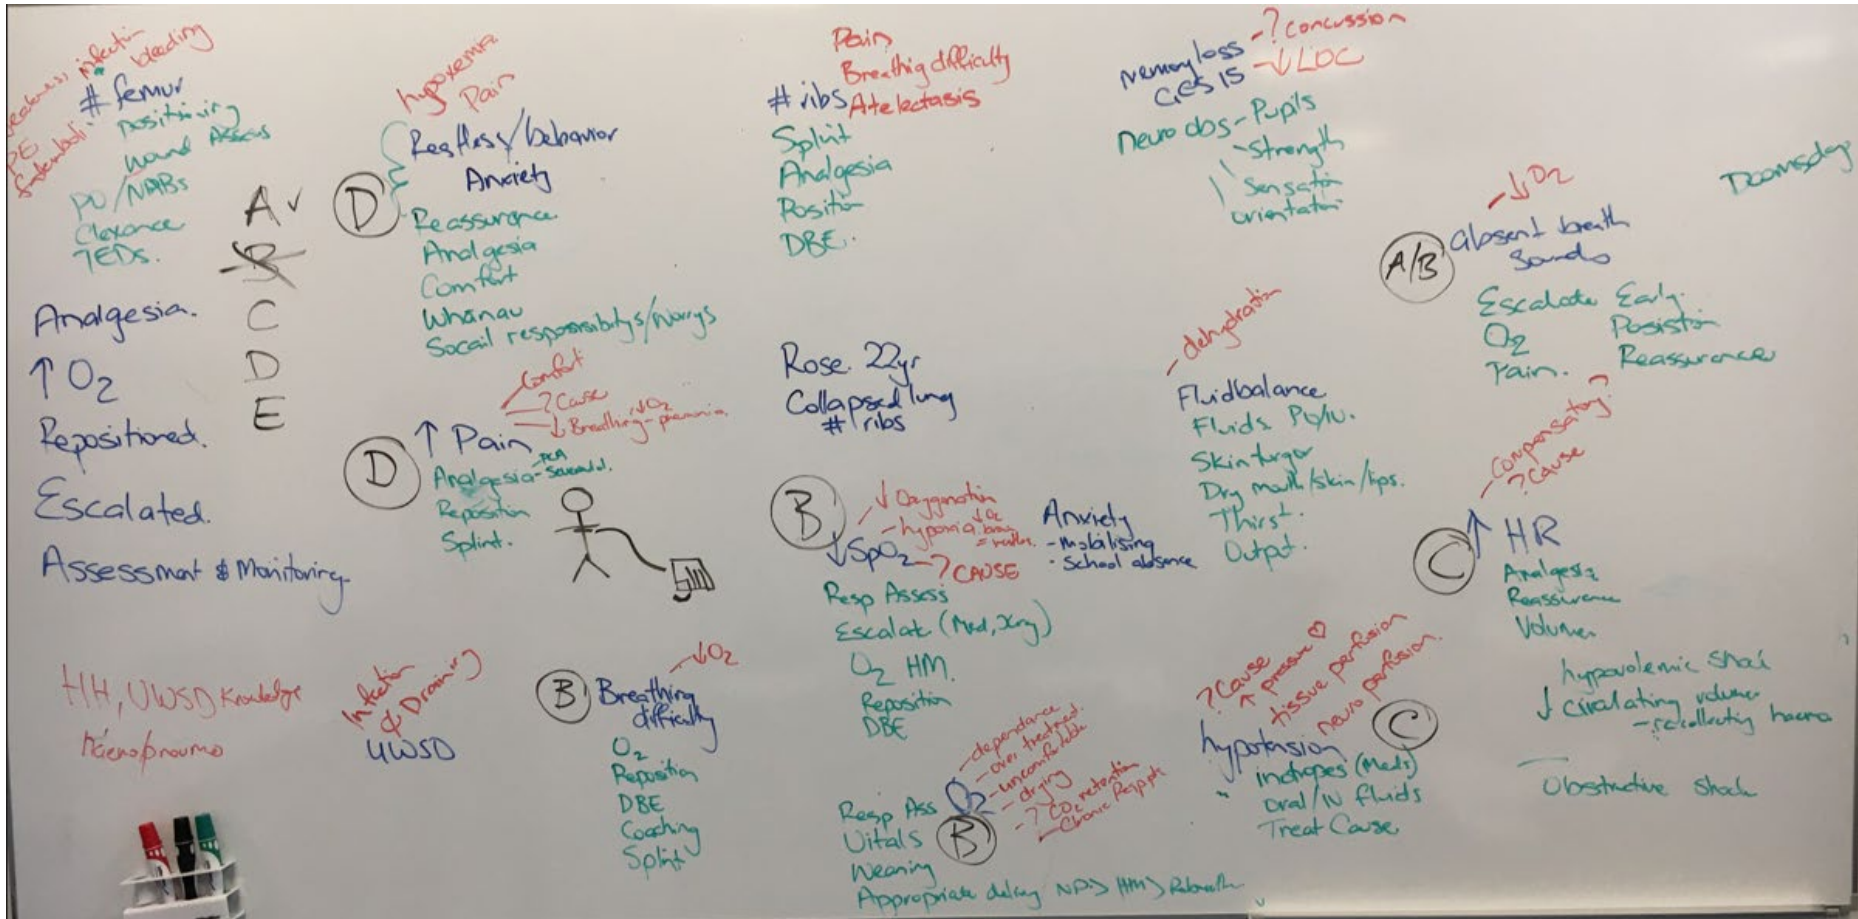 infection
bleeding
# femur
positioning
wound Assess
PE
PU/NABs
Clexane
TEDs.
A ✓
B
C
D
E
Analgesia.
↑ O2
Repositioned.
Escalated.
Assessment & Monitoring
HH, UWSD Knowledge
haemo/pneumo
hypoxemia
Pain
D
Restless/behavior
Anxiety
Reassurance
Analgesia
Comfort
Whanau
Socail responsibilitys/Worrys
Comfort
? Cause
↓ Breathing
↓O2
D
↑ Pain
Analgesia - PCA
Reposition
Splint.
Infection
& Draining
UWSD
↓O2
B
Breathing
difficulty
O2
Reposition
DBE
Coaching
Splint
Pain
Breathig difficulty
Atelectasis
# ribs
Splint
Analgesia
Position
DBE.
Rose. 22yr
Collapsed lung
# ribs
B
↓ Oxygenation
- hypoxia
↓SpO2 - ? CAUSE
Resp Assess
Escalate (Med, Xray)
O2 HM.
Reposition
DBE
Anxiety
- Mobilising
- School absence
- dependance
- over treatment.
- uncomfortable
- drying
- ? CO2 retention
- Chronic Resp pt
O2
B
Resp Ass
Vitals
Weaning
Appropriate delivery NP > HM > Rebreath
- ? concussion
Memory loss
GCS 15 - ↓ LOC
Neuro obs - Pupils
Strength
Sensation
orientation
- dehydration
Fluidbalance
Fluids PO/IV.
Skin turgor
Dry mouth/skin/lips.
Thirst.
Output.
? Cause
↑ pressure ♡
tissue perfusion
neuro perfusion.
C
hypotension
inotropes (Meds)
oral/IV fluids
Treat Cause
Doomsday
- ↓O2
A/B
absent breath
Sounds
Escalate Early.
O2 Posistion
Pain. Reassurance
- compensatory?
? Cause
C
↑ HR
Analgesia
Reassurance
Volume
hypovolemic Shock
↓ Circulating volume
Obstructive shock